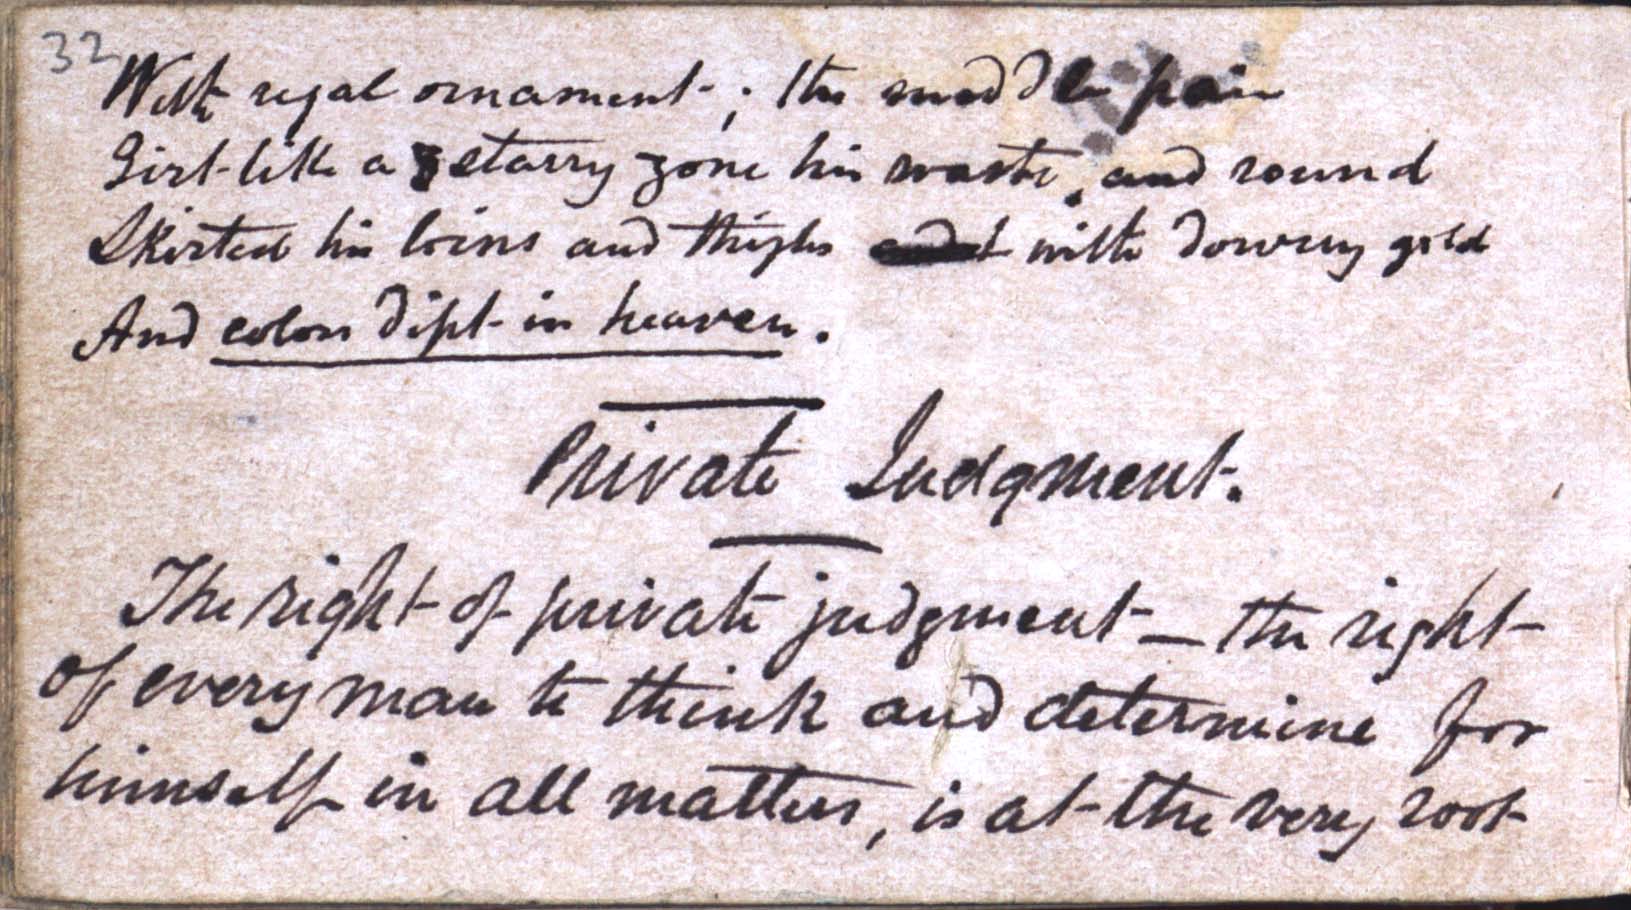 32
With regal ornament; the middle pair
Girt like a starry zone his waste, and round
Skirted his loins and thighs with downy gold
And colors dipt in heaven.
Private Judgment.
The right of private judgment — the right
of every man to think and determine for
himself in all matters, is at the very root